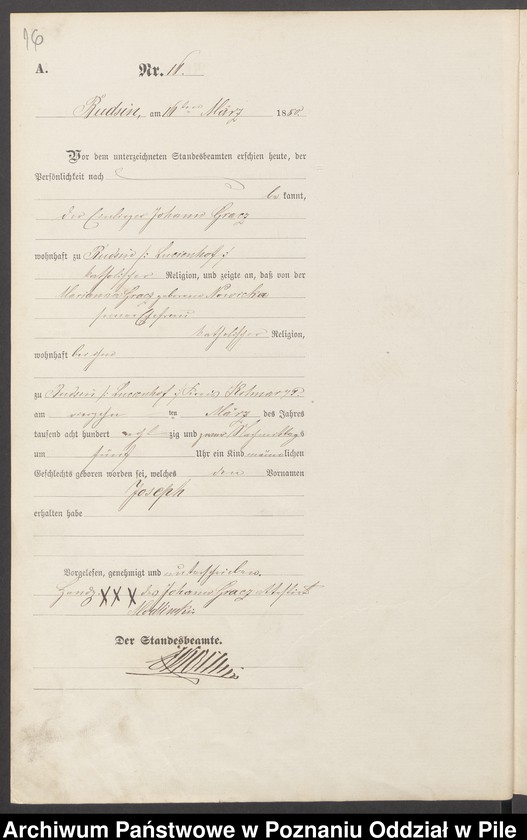 16
A. Nr. 16.
Budsin, am 16ten März 1880
Vor dem unterzeichneten Standesbeamten erschien heute, der
Persönlichkeit nach
be kannt,
der Einlieger Johann Gracz
wohnhaft zu Budsin /: Lucienhof :/
katholischer Religion, und zeigte an, daß von der
Marianna Gracz geborene Nowicka
seiner Ehefrau
katholischer Religion,
wohnhaft bei ihm
zu Budsin /: Lucienhof :/ Kreis Kolmar
am vierzehn ten März des Jahres
tausend acht hundert acht zig und zwar Nachmittags
um fünf Uhr ein Kind männlichen
Geschlechts geboren worden sei, welches den Vornamen
Joseph
erhalten habe
Vorgelesen, genehmigt und unterschrieben.
Handz. XXX des Johann Gracz Attestirt
Der Standesbeamte.
Archiwum Państwowe w Poznaniu Oddział w Pile